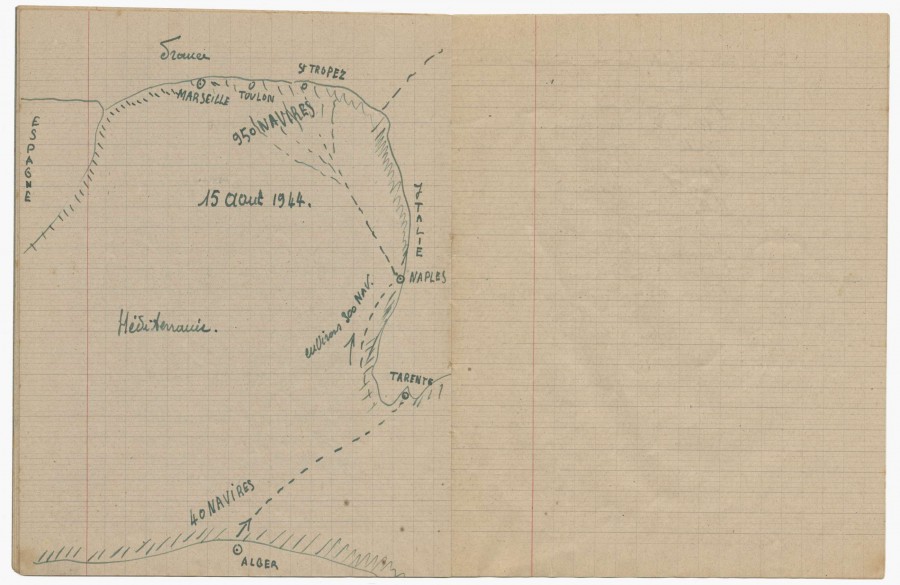 France
St TROPEZ
MARSEILLE
TOULON
950 NAVIRES
ESPAGNE
15 Aout 1944.
ITALIE
NAPLES
environs 300 NAV.
Méditerranée.
TARENTE
40 NAVIRES
ALGER